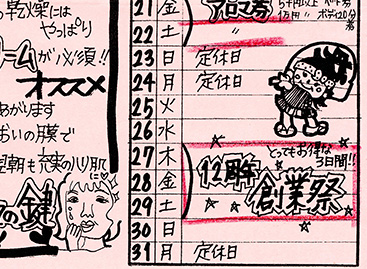 乾燥には
やっぱり
ームが必須!!
オススメ
あがります
おいの膜で
翌朝も充実のハリ肌
の鍵
21 金 アロマ券
22 土 〃
23 日 定休日
24 月 定休日
25 火
26 水
27 木 とってもお得な
28 金 12周年 3日間!!
29 土 創業祭
30 日
31 月 定休日